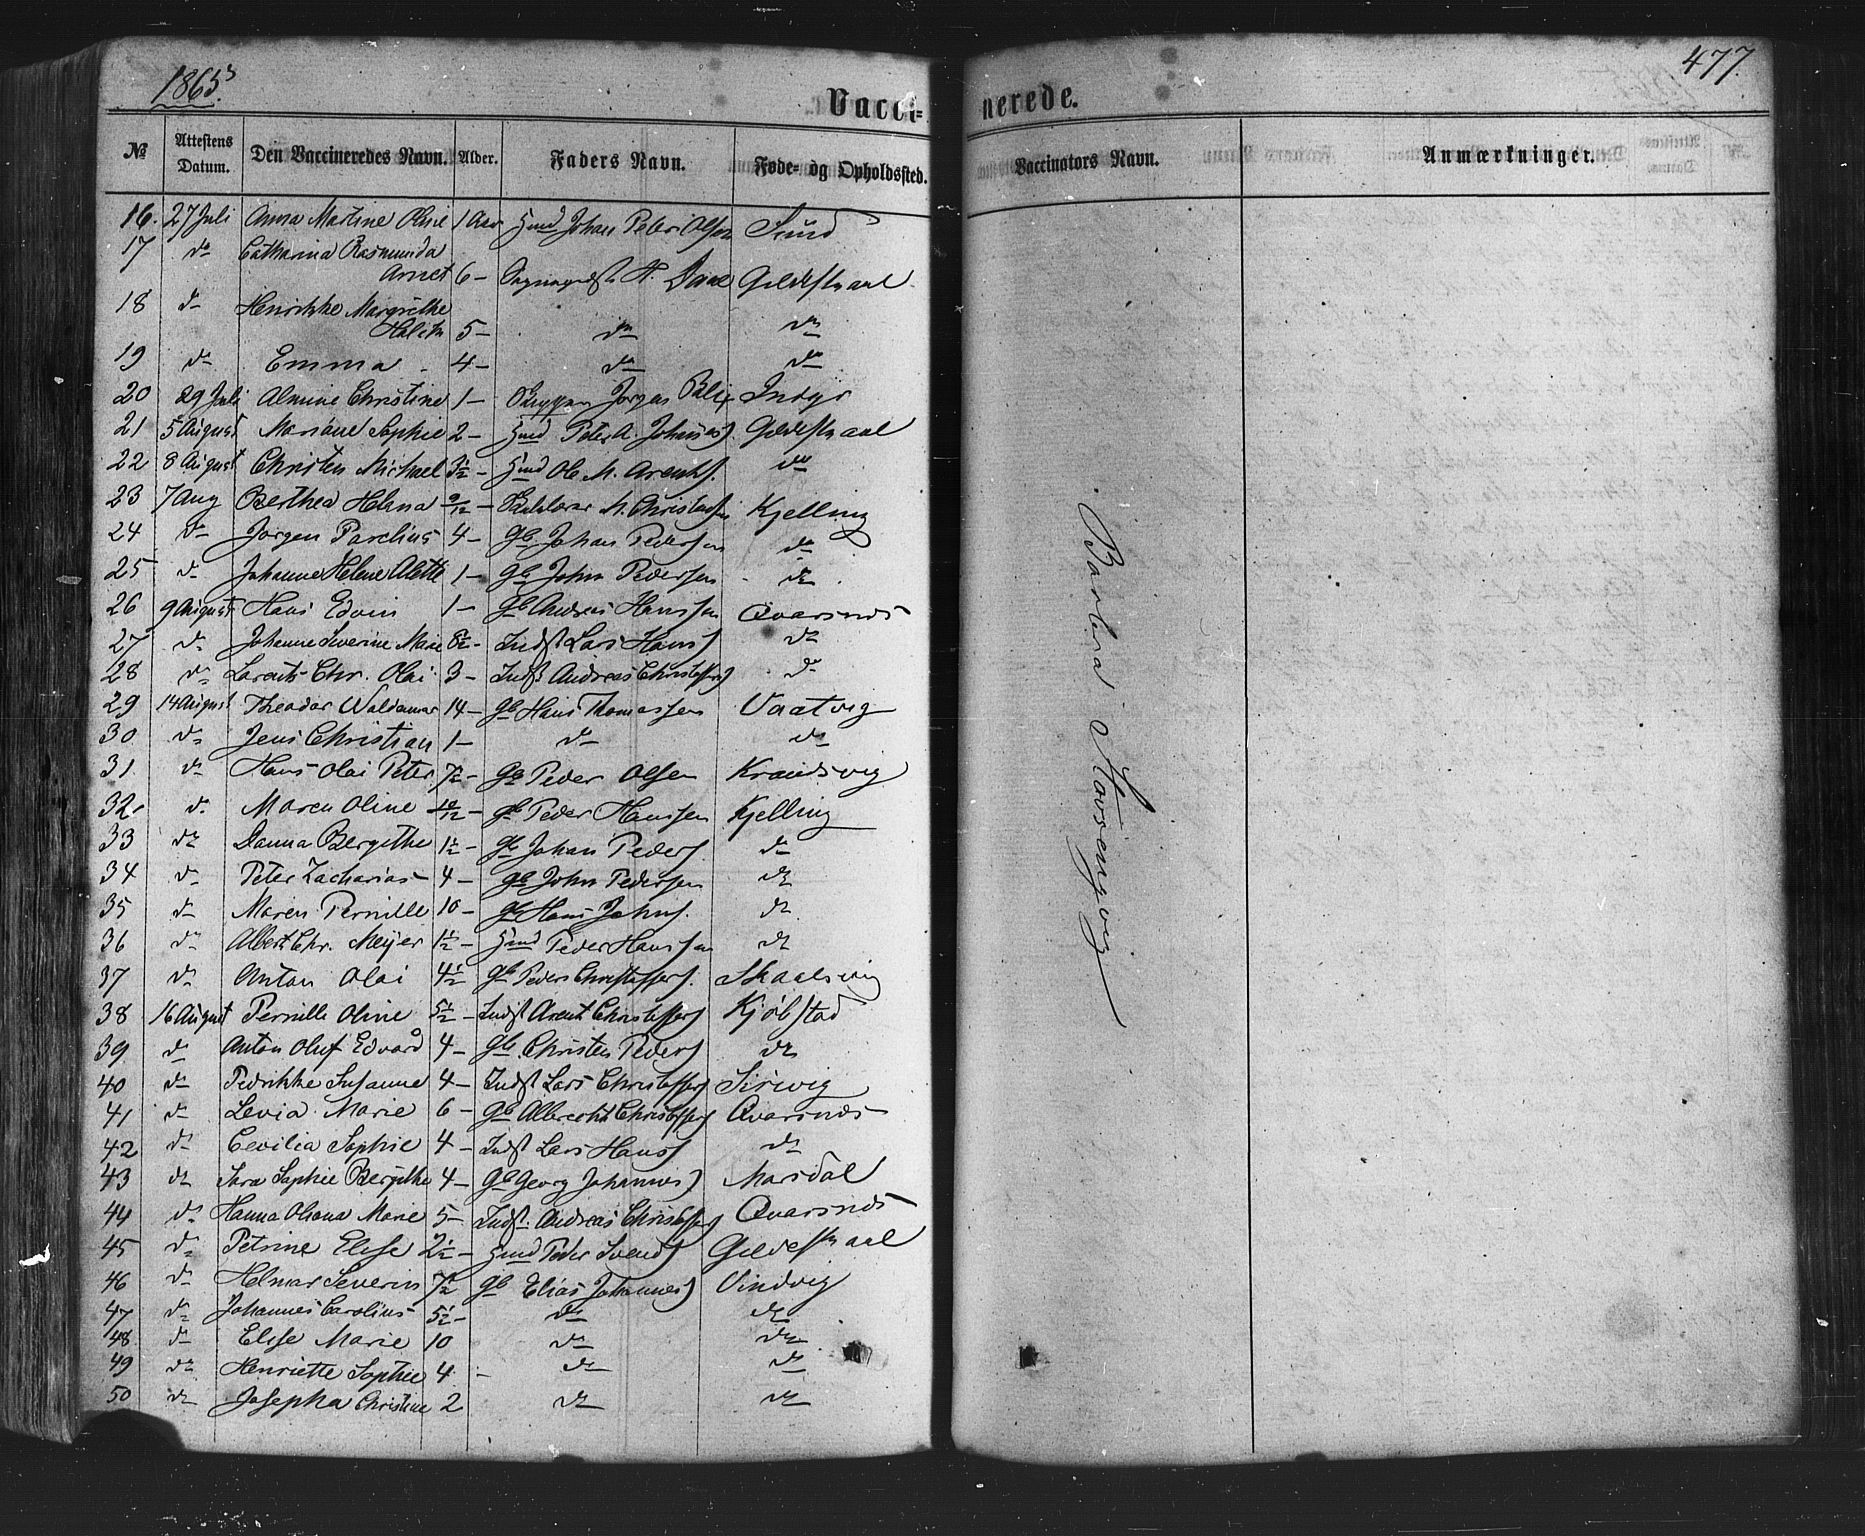 1865.
477.
Vacci-
nerede.
№ Attestens Datum. Den Vaccineredes Navn. Alder. Faders Navn. Føde- og Opholdssted. Vaccinators Navn. Anmærkninger.
16. 27 Juli Anna Martine Oline 1 Aar Hmd Johan Peter Olsen Sund
17 do Catharina Rasmunda
6 - H. Daae Gildeskaal
18 do Henrikke Margrethe
5 - do do
19 do Emma - 4 - do do
20 29 Juli Almine Christine 1 - Jørgen Blix Indyr
21 5 August Mariane Sophie 2 - Hmd Peter A. Johanes) Gildeskaal
22 8 August Christen Michael 3½ - Hmd Ole M. Arents. do
23 7 Aug Berthea Helena 9/12 - M. Christens Kjelling
24 do Jørgen Parelius 4 - Gb. Johan Pedersen do
25 do Johanne Helene Alette 1 - Gb John Pedersen do
26 9 August Hans Edvin 1 - Gb Andreas Hanssen Qvarsnes
27 do Johanne Severine Marie 8½ - Indst Lars Hans) do
28 do Lorents Chr. Olai 3 - Indst Andreas Christoffers) do
29 14 August Theodor Waldemar 14 - Gb Hans Thomassen Vaatvig
30 do Jens Christian 1 - do do
31 do Hans Olai Peter 7½ - Gb Peder Olsen Krandsvig
32 do Maren Oline 10/12 - Gb Peder Hanssen Kjelling
33 do Danna Bergithe 1½ - Gb Johan Peders do
34 do Peter Zacharias 4 - Gb John Pedersen do
35 do Maren Pernille 10 - Gb Hans Johns. do
36 do Albert Chr. Meijer 1½ - Hmd Peder Hanssen do
37 do Anton Olai 4½ - Gb Peder Christoffers. Skaalsvig
38 16 August Pernille Oline 5½ - Indst Arent Christoffers) Kjøbstad
39 do Anton Oluf Edvard 4 - Gb. Christen Peders do
40 do Pedrikke Susanne 4 - Indst Lars Christoffers) Sörvig
41 do Levia Marie 6 - Gb Albrecht Christoffers) Qvarsnes
42 do Cecilia Sophie 4 - Indst Lars Hans) do
43 do Sara Sophie Bergithe 4 - Gb Georg Johannes) Marsdal
44 do Hanna Oliana Marie 5 - Indst. Andreas Christoffers) Qvarsnes
45 do Petrine Elise 2½ - Hmd Peder Svends) Gildeskaal
46 do Helmer Severin 7½ Gb Elias Johannes) Vindvig
47 do Johannes Carolius 5½ - do do
48 do Elise Marie 10 do do
49 do Henriette Sophie 4 - do do
50 do Josepha Christine 2 do do